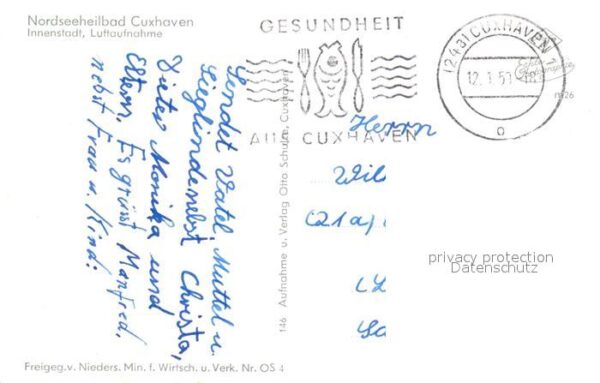 Nordseeheilbad Cuxhaven
Innenstadt, Luftaufnahme
GESUNDHEIT
AUS CUXHAVEN
(24a) CUXHAVEN 1
12.1.59
a
m26
Sendet Vatel, Muttel u.
Sieglinde nebst Christa,
Dieter Monika und
Eltern, Es grüsst Manfred,
nebst Frau u. Kind:
146 Aufnahme u. Verlag Otto Schulze, Cuxhaven
Herrn
Wil
(21a)
privacy protection
Datenschutz
Freigeg.v. Nieders. Min. f. Wirtsch. u. Verk. Nr. OS 4